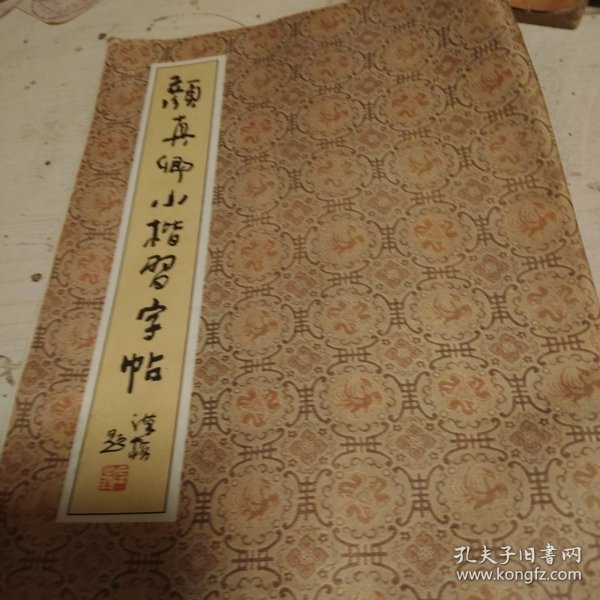 顏真卿小楷習字帖
題
孔夫子旧书网
www.kongfz.com